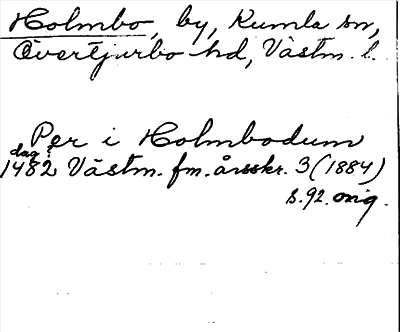 Holmbo, by, Kumla sn,
Övertjurbo hd, Västm. l.
Per i Holmbodum
dag?
1482 Västm. fm. årsskr. 3 (1884)
s. 92. orig.